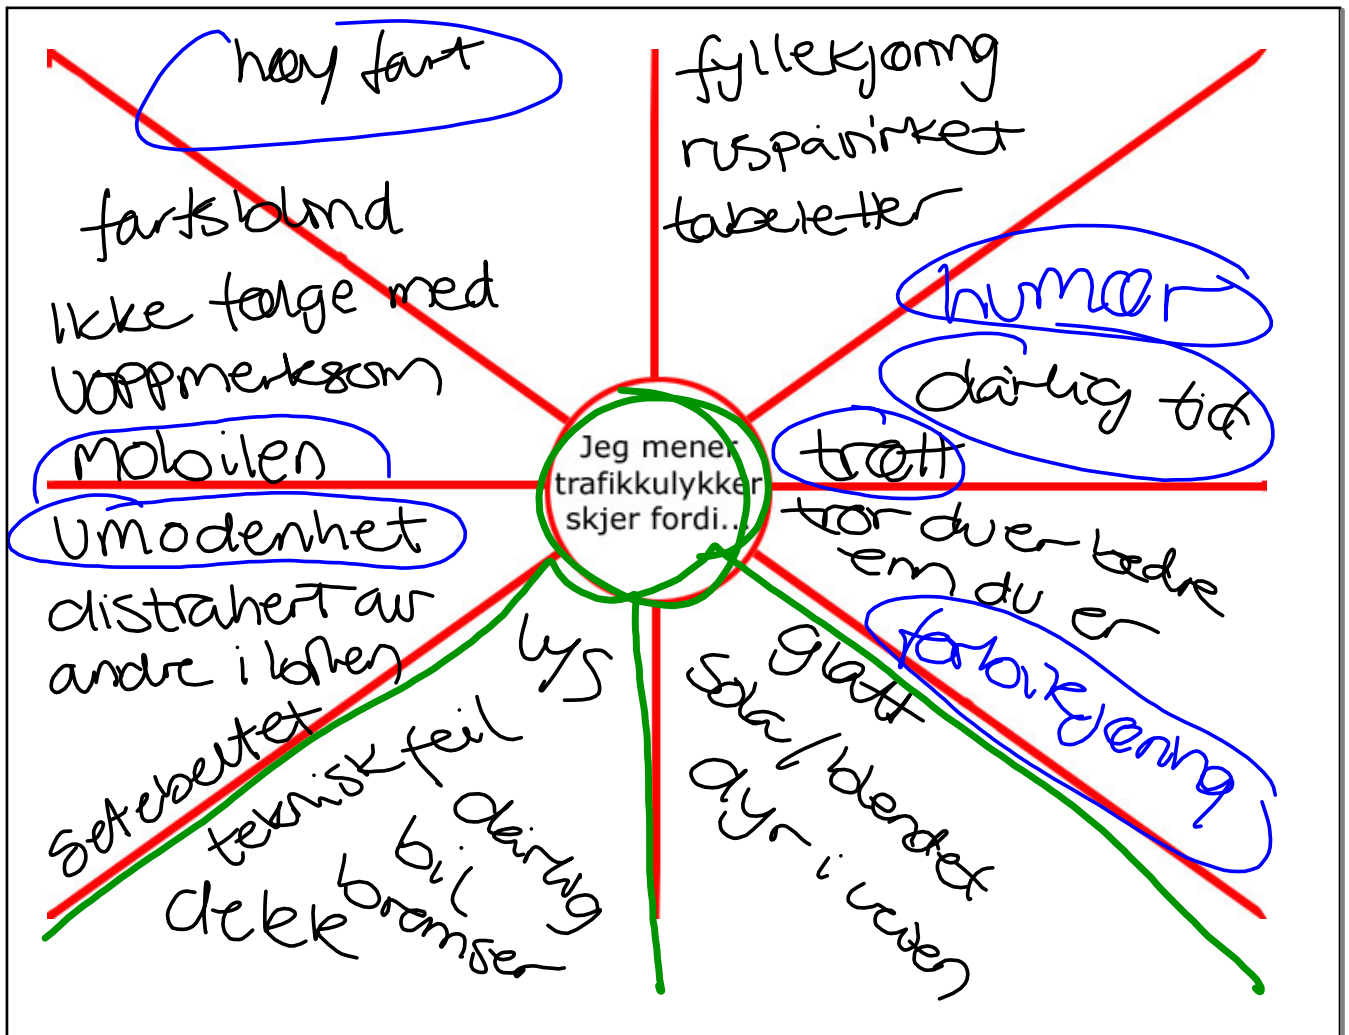 høy fart
fartsblind
ikke følge med
uoppmerksom
mobilen
umodenhet
distrahert av
andre i bilen
setebeltet
fyllekjøring
ruspåvirket
tabeletter
humør
dårlig tid
trøtt
tror du er bedre
enn du er
forbikjøring
Jeg mener
trafikkulykker
skjer fordi...
lys
teknisk feil
dårlig
bil
bremser
dekk
glatt
sola/blendet
dyr i veien